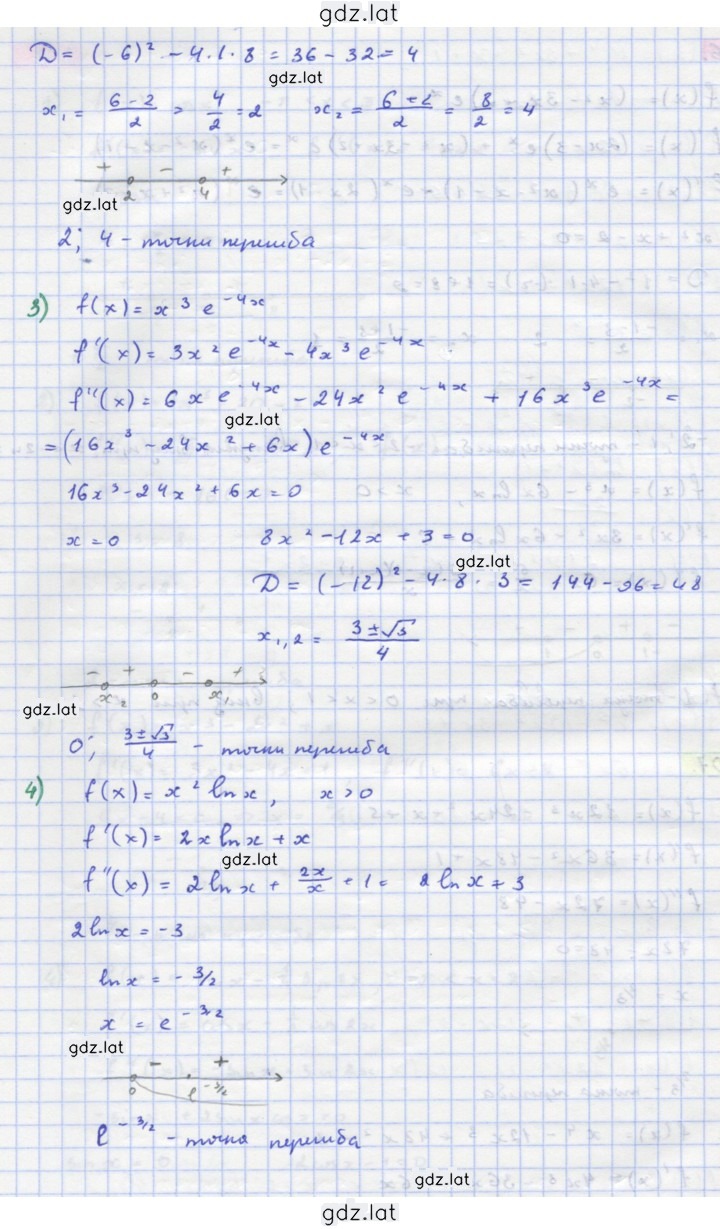 gdz.lat
D = (-6)² - 4·1·8 = 36 - 32 = 4
gdz.lat
x₁ = (6-2)/2 = 4/2 = 2    x₂ = (6+2)/2 = 8/2 = 4
+ - +
gdz.lat 2 4
2; 4 - точки перегиба
3) f(x) = x³ e^(-4x)
f'(x) = 3x² e^(-4x) - 4x³ e^(-4x)
f''(x) = 6x e^(-4x) - 24x² e^(-4x) + 16x³ e^(-4x) =
gdz.lat
= (16x³ - 24x² + 6x) e^(-4x)
16x³ - 24x² + 6x = 0
x = 0    8x² - 12x + 3 = 0
gdz.lat
D = (-12)² - 4·8·3 = 144 - 96 = 48
x₁,₂ = (3±√3)/4
- + - +
x₂ 0 x₁
gdz.lat
0; (3±√3)/4 - точки перегиба
4) f(x) = x² ln x, x > 0
f'(x) = 2x ln x + x
gdz.lat
f''(x) = 2 ln x + 2x/x + 1 = 2 ln x + 3
2 ln x = -3
ln x = -3/2
x = e^(-3/2)
gdz.lat
- +
0 e^(-3/2)
e^(-3/2) - точка перегиба
gdz.lat
gdz.lat